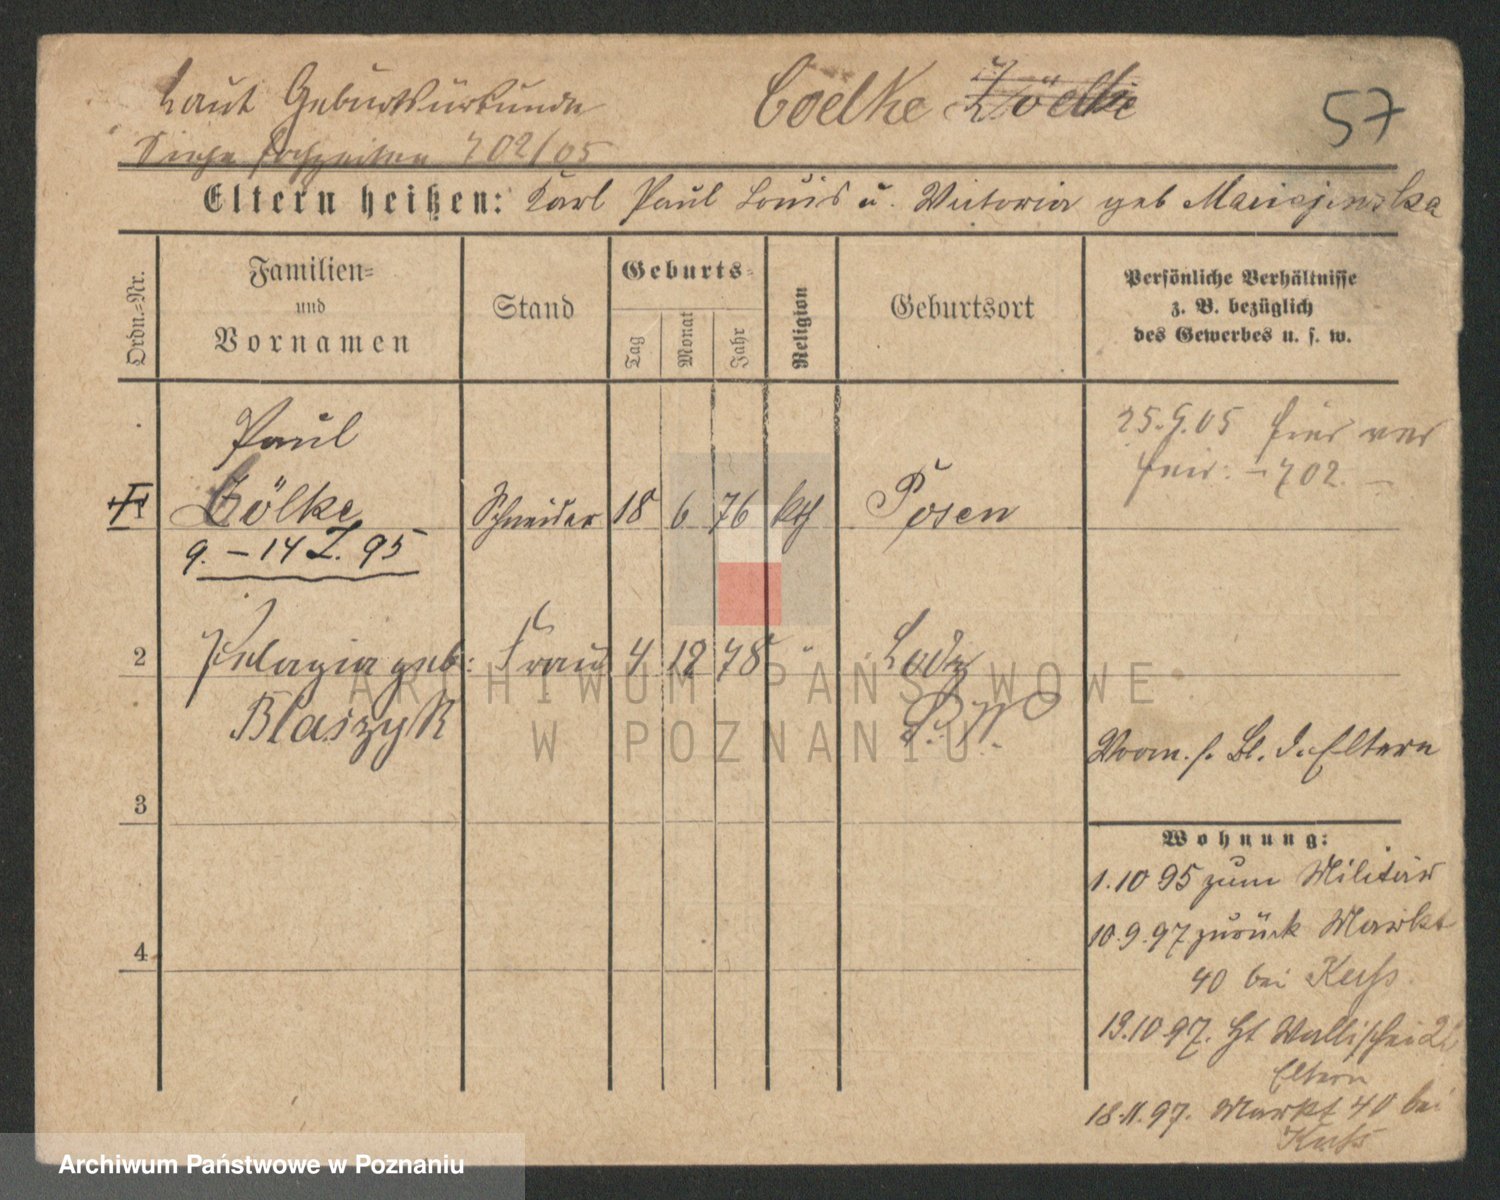 Laut Geburtsurkunde
Coelke Zölke
57
Siehe 702/05
Eltern heißen: Karl Paul Louis u. Victoria geb Maciejewska
Ordn.-Nr.
Familien-
und
Vornamen
Stand
Geburts-
Tag
Monat
Jahr
Religion
Geburtsort
Persönliche Verhältnisse
z. B. bezüglich
des Gewerbes u. s. w.
Paul
Zölke Schneider 18 6 76 kth Posen
25.9.05 hier ver
heir. - 702. -
9. - 14 Z. 95
2 Pelagia geb: Frau 4 12 78 " Lodz
Blaszyk
Vorm. s. Bl. d. Eltern
3
Wohnung:
1.10 95 zum Militär
10.9.97 zurück Markt
4
40 bei Kuss
13.10.97. Wallischei
Eltern
18.11.97. Markt 40 bei
Kuss
ARCHIWUM PAŃSTWOWE
W POZNANIU
Archiwum Państwowe w Poznaniu